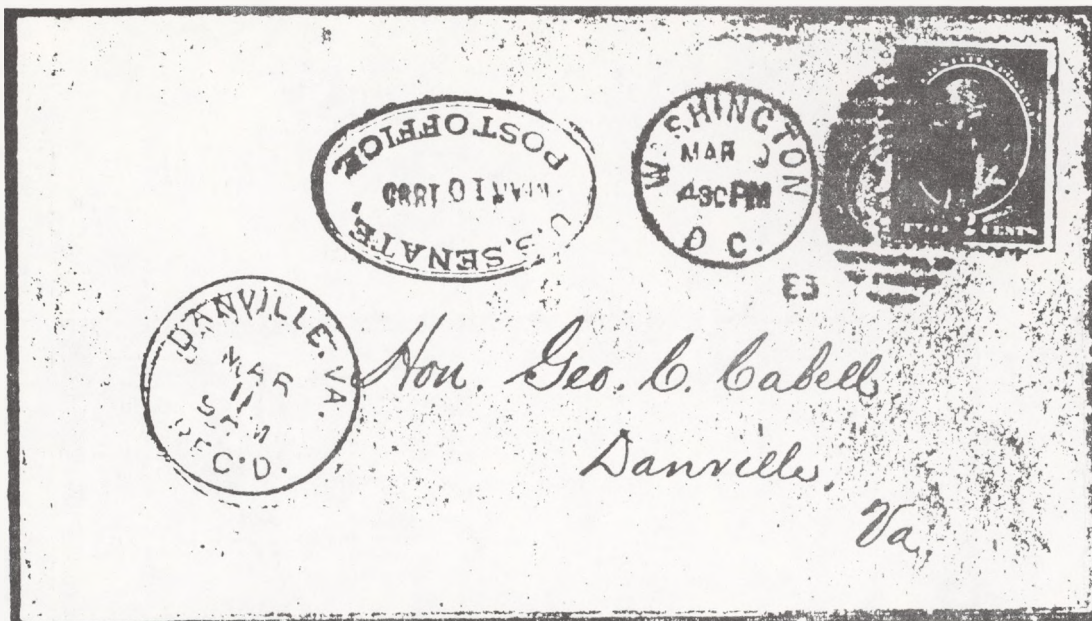 U.S. SENATE.
POST OFFICE.
MAR 10
WASHINGTON
MAR
430PM
D C.
TWO 2 CENTS
DANVILLE. VA.
MAR
11
9AM
REC'D.
Hon. Geo. C. Cabell,
Danville,
Va.